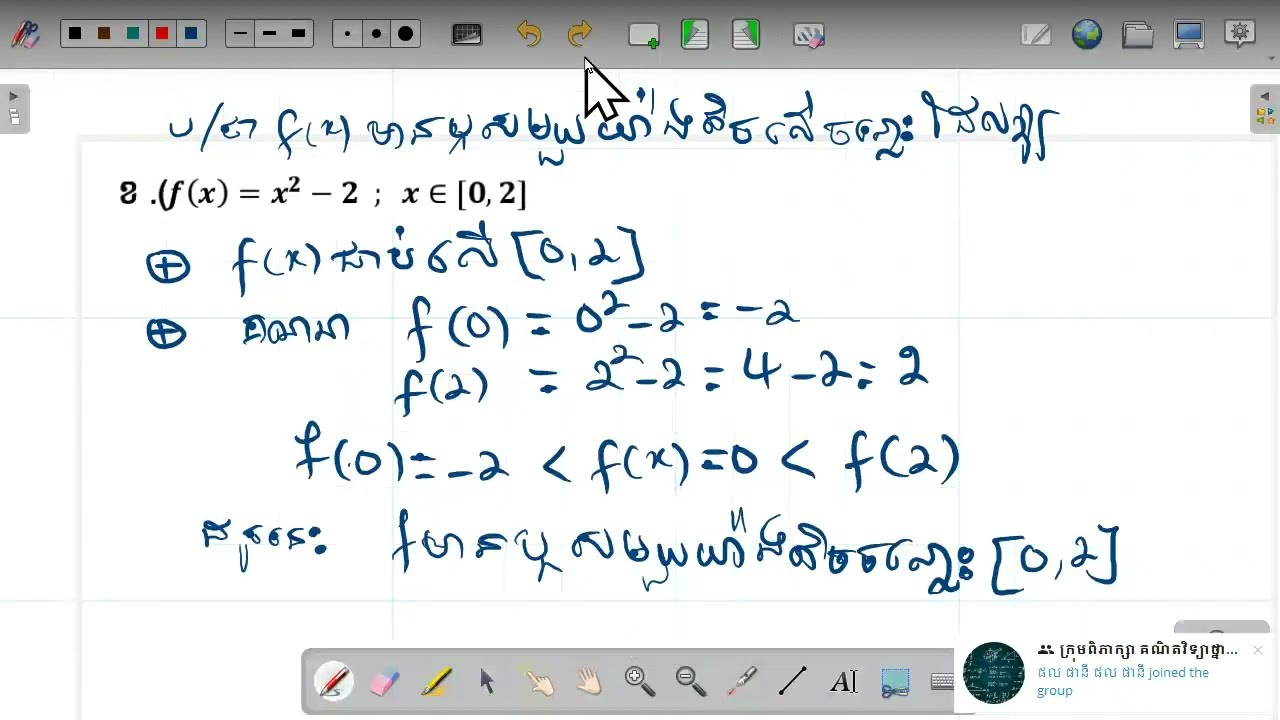 ប/ថា f(x) មានឫសមួយយ៉ាងតិចលើចន្លោះដែលឱ្យ
ខ .(f(x) = x² − 2 ; x ∈ [0, 2]
⊕ f(x) ជាប់លើ [0, 2]
⊕ គណនា f(0) = 0² − 2 = −2
f(2) = 2² − 2 = 4 − 2 = 2
f(0) = −2 < f(x) = 0 < f(2)
ដូចនេះ f មានឫសមួយយ៉ាងតិចចន្លោះ [0, 2]
AI
ក្រុមពិភាក្សា គណិតវិទ្យាថ្នា...
ផល ផានី ផល ផានី joined the
group